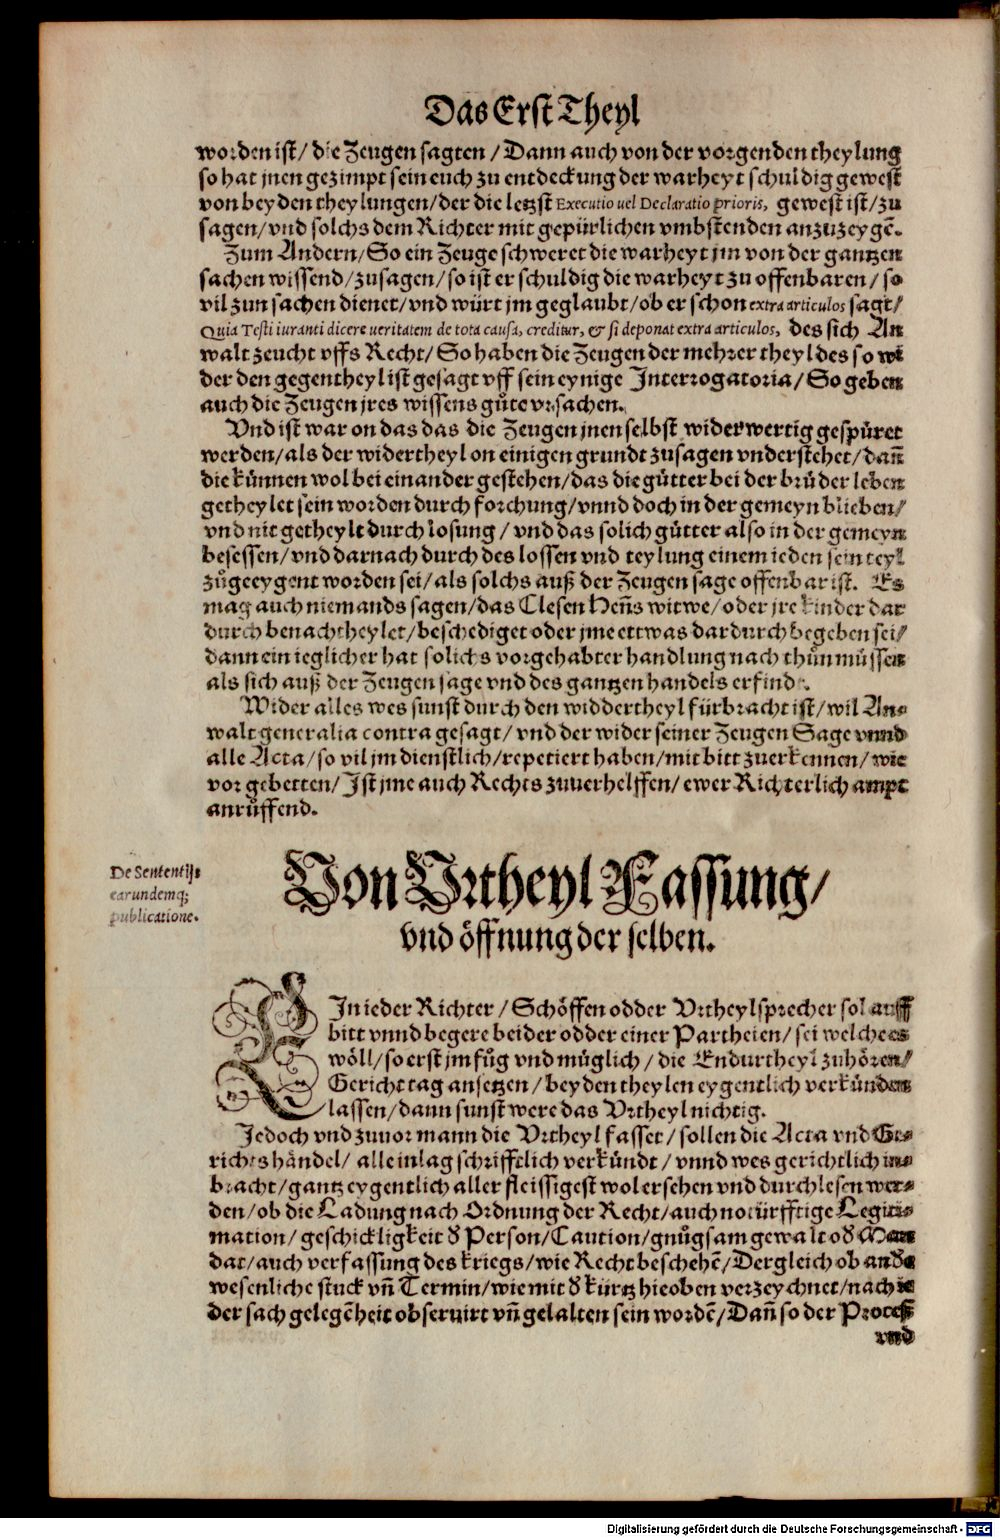 Das Erst Theyl
worden ist/ die Zeugen sagten / Dann auch von der vorgenden theylung
so hat jnen gezimpt sein euch zu entdeckung der warheyt schuldig gewest
von beyden theylungen/der die letzst Executio uel Declaratio prioris, gewest ist/zu
sagen/vnd solchs dem Richter mit gepürlichen vmbstenden anzuzeygē.
Zum Andern/So ein Zeuge schweret die warheyt jm von der gantzen
sachen wissend/zusagen/so ist er schuldig die warheyt zu offenbaren/ so
vil zun sachen dienet/vnd würt jm geglaubt/ob er schon extra articulos sagt/
Quia Testi iuranti dicere ueritatem de tota causa, creditur, & si deponat extra articulos, des sich An
walt zeucht vffs Recht/ So haben die Zeugen der mehrer theyl des so wi
der den gegentheyl ist gesagt vff sein eynige Interrogatoria/ So geben
auch die Zeugen jres wissens gůte vrsachen.
Vnd ist war on das das die Zeugen jnen selbst widerwertig gespüret
werden/als der widertheyl on einigen grundt zusagen vnderstehet/dañ
die künnen wol bei einander gestehen/das die gütter bei der brüder leben
getheylet sein worden durch forchung/vnnd doch in der gemeyn blieben/
vnd nit getheylt durch losung / vnd das solich gütter also in der gemeyn
besessen/vnd darnach durch des lossen vnd teylung einem ieden sein teyl
zůgeeygent worden sei/als solchs auß der Zeugen sage offenbar ist. Es
mag auch niemands sagen/das Clesen Heñs witwe/oder jre kinder dar
durch benachtheylet/beschediget oder jme ettwas dardurch begeben sei/
dann ein ieglicher hat solichs vorgehabter handlung nach thůn müssen
als sich auß der Zeugen sage vnd des gantzen handels erfindt.
Wider alles wes sunst durch den widdertheyl fürbracht ist/wil An-
walt generalia contra gesagt/ vnd der wider seiner Zeugen Sage vnnd
alle Acta/so vil jm dienstlich/repetiert haben/mit bitt zuerkennen/wie
vor gebetten/Ist jme auch Rechts zuuerhelffen/ewer Richterlich ampt
anrůffend.
De Sententijs
earundemq;
publicatione.
Von Vrtheyl Fassung/
vnd öffnung der selben.
EIn ieder Richter / Schöffen odder Vrtheylsprecher sol auff
bitt vnnd begere beider odder einer Partheien/sei welche es
wöll/so erst jm fůg vnd müglich/die Endurtheyl zuhören/
Gericht tag ansetzen/beyden theylen eygentlich verkünden
lassen/dann sunst were das Vrtheyl nichtig.
Jedoch vnd zuuor mann die Vrtheyl fasset/sollen die Acta vnd Ge-
richts händel/ alle inlag schrifftlich verkündt/ vnnd wes gerichtlich in-
bracht/gantz eygentlich aller fleissigest wol ersehen vnd durchlesen wer-
den/ob die Ladung nach Ordnung der Recht/auch notürfftige Legiti-
mation/ geschickligkeit ð Person/Caution/gnůgsam gewalt oð Man
dat/auch verfassung des kriegs/wie Recht beschehē/Dergleich ob andə
wesenliche stuck vñ Termin/wie mit ð kürtz hieoben verzeychnet/nach ie
der sach gelegēheit obseruirt vñ gelalten sein wordē/Dañ so der Proceß
vnd
Digitalisierung gefördert durch die Deutsche Forschungsgemeinschaft - DFG